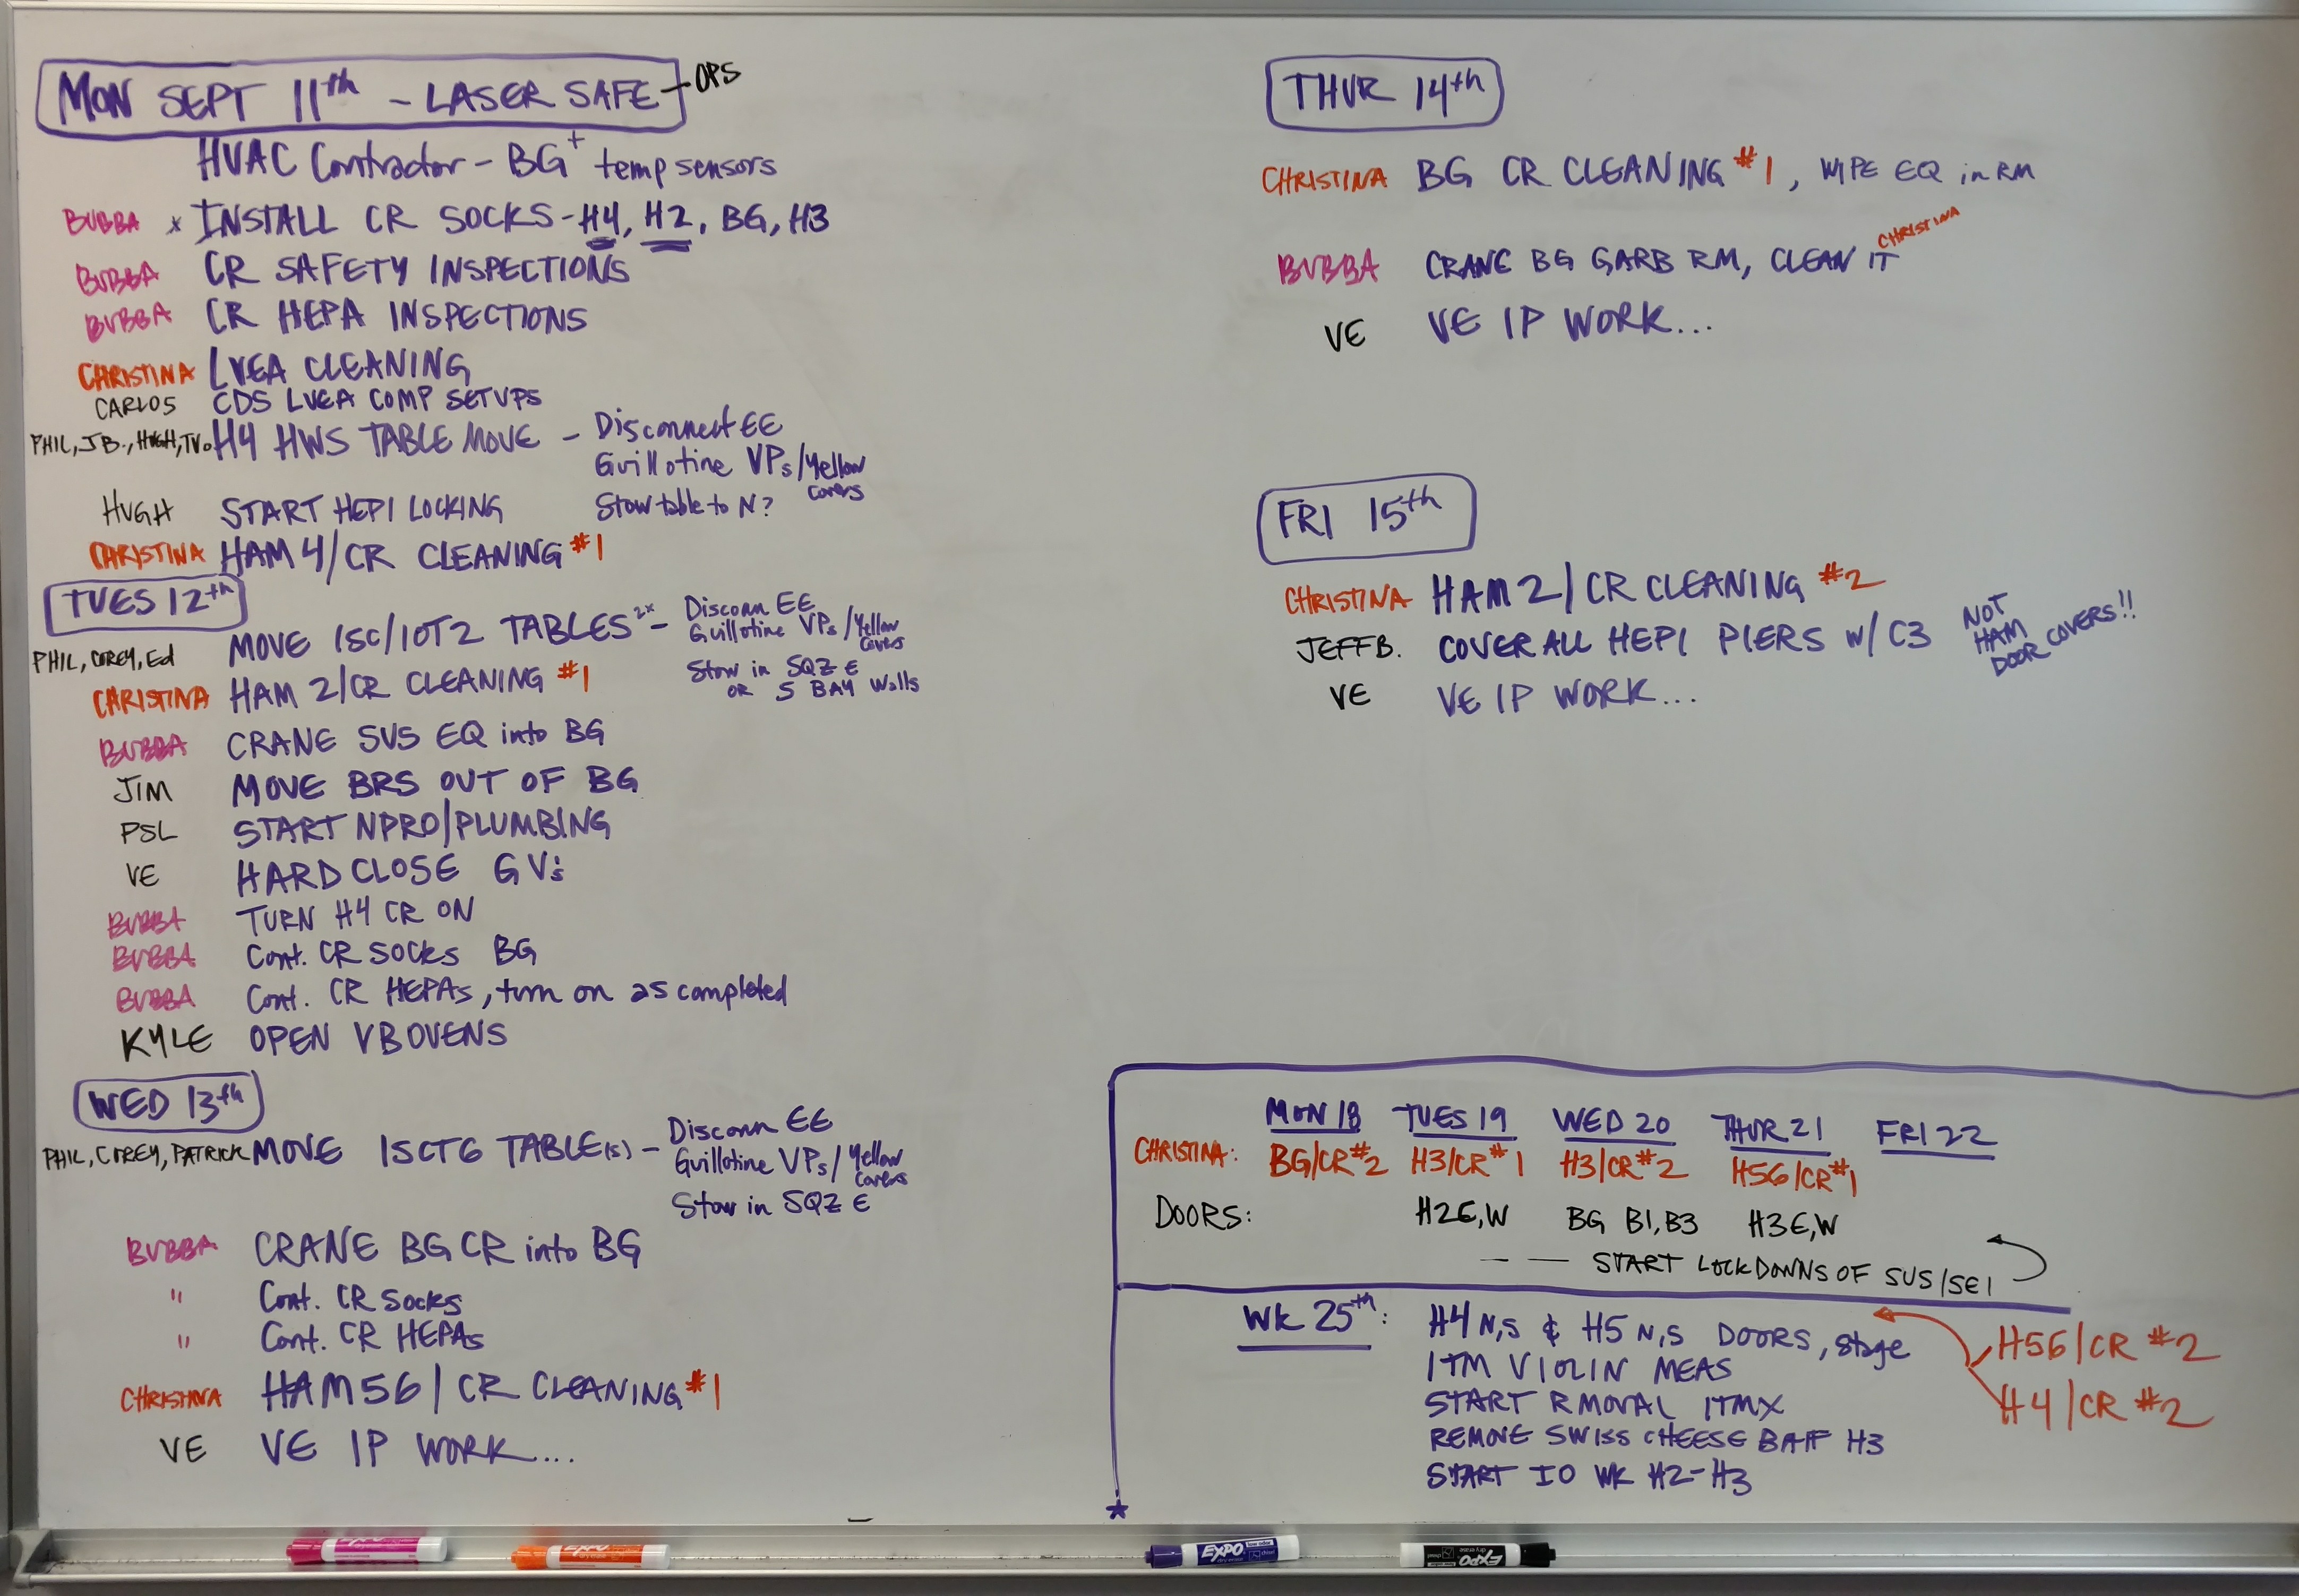 MON SEPT 11th - LASER SAFE - OPS
HVAC Contractor - BG + temp sensors
BUBBA x INSTALL CR SOCKS - H4, H2, BG, H3
BUBBA CR SAFETY INSPECTIONS
BUBBA CR HEPA INSPECTIONS
CHRISTINA LVEA CLEANING
CARLOS CDS LVEA COMP SETUPS
PHIL, J B., HUGH, TV. H4 HWS TABLE MOVE - Disconnect EE
Guillotine VPs/Yellow covers
Stow table to N?
HUGH START HEPI LOCKING
CHRISTINA HAM 4/CR CLEANING #1
TUES 12th
PHIL, COREY, Ed MOVE ISC/IOT2 TABLES 2x - Disconn EE
Guillotine VPs/Yellow covers
Stow in SQZ E
OR S BAY Walls
CHRISTINA HAM 2/CR CLEANING #1
BUBBA CRANE SUS EQ into BG
JIM MOVE BRS OUT OF BG
PSL START NPRO/PLUMBING
VE HARD CLOSE GVs
BUBBA TURN H4 CR ON
BUBBA Cont. CR SOCKS BG
BUBBA Cont. CR HEPAs, turn on as completed
KYLE OPEN VB OVENS
WED 13th
PHIL, COREY, PATRICK MOVE ISCT6 TABLE(s) - Disconn EE
Guillotine VPs/Yellow covers
Stow in SQZ E
BUBBA CRANE BG CR into BG
" Cont. CR Socks
" Cont. CR HEPAs
CHRISTINA HAM56/CR CLEANING #1
VE VE IP WORK...
THUR 14th
CHRISTINA BG CR CLEANING #1, WIPE EQ in RM
BUBBA CRANE BG GARB RM, CLEAN IT CHRISTINA
VE VE IP WORK...
FRI 15th
CHRISTINA HAM2/CR CLEANING #2
JEFF B. COVER ALL HEPI PIERS W/ C3 NOT HAM DOOR COVERS!!
VE VE IP WORK...
MON 18 TUES 19 WED 20 THUR 21 FRI 22
CHRISTINA: BG/CR#2 H3/CR#1 H3/CR#2 H56/CR#1
DOORS: H2E,W BG B1,B3 H3E,W
— — START LOCKDOWNS OF SUS/SEI
WK 25th: H4 N,S & H5 N,S DOORS, stage
ITM VIOLIN MEAS
START RMOVAL ITMX
REMOVE SWISS CHEESE BAFF H3
START IO WK H2-H3
H56/CR #2
H4/CR #2
EXPO
EXPO
EXPO
EXPO